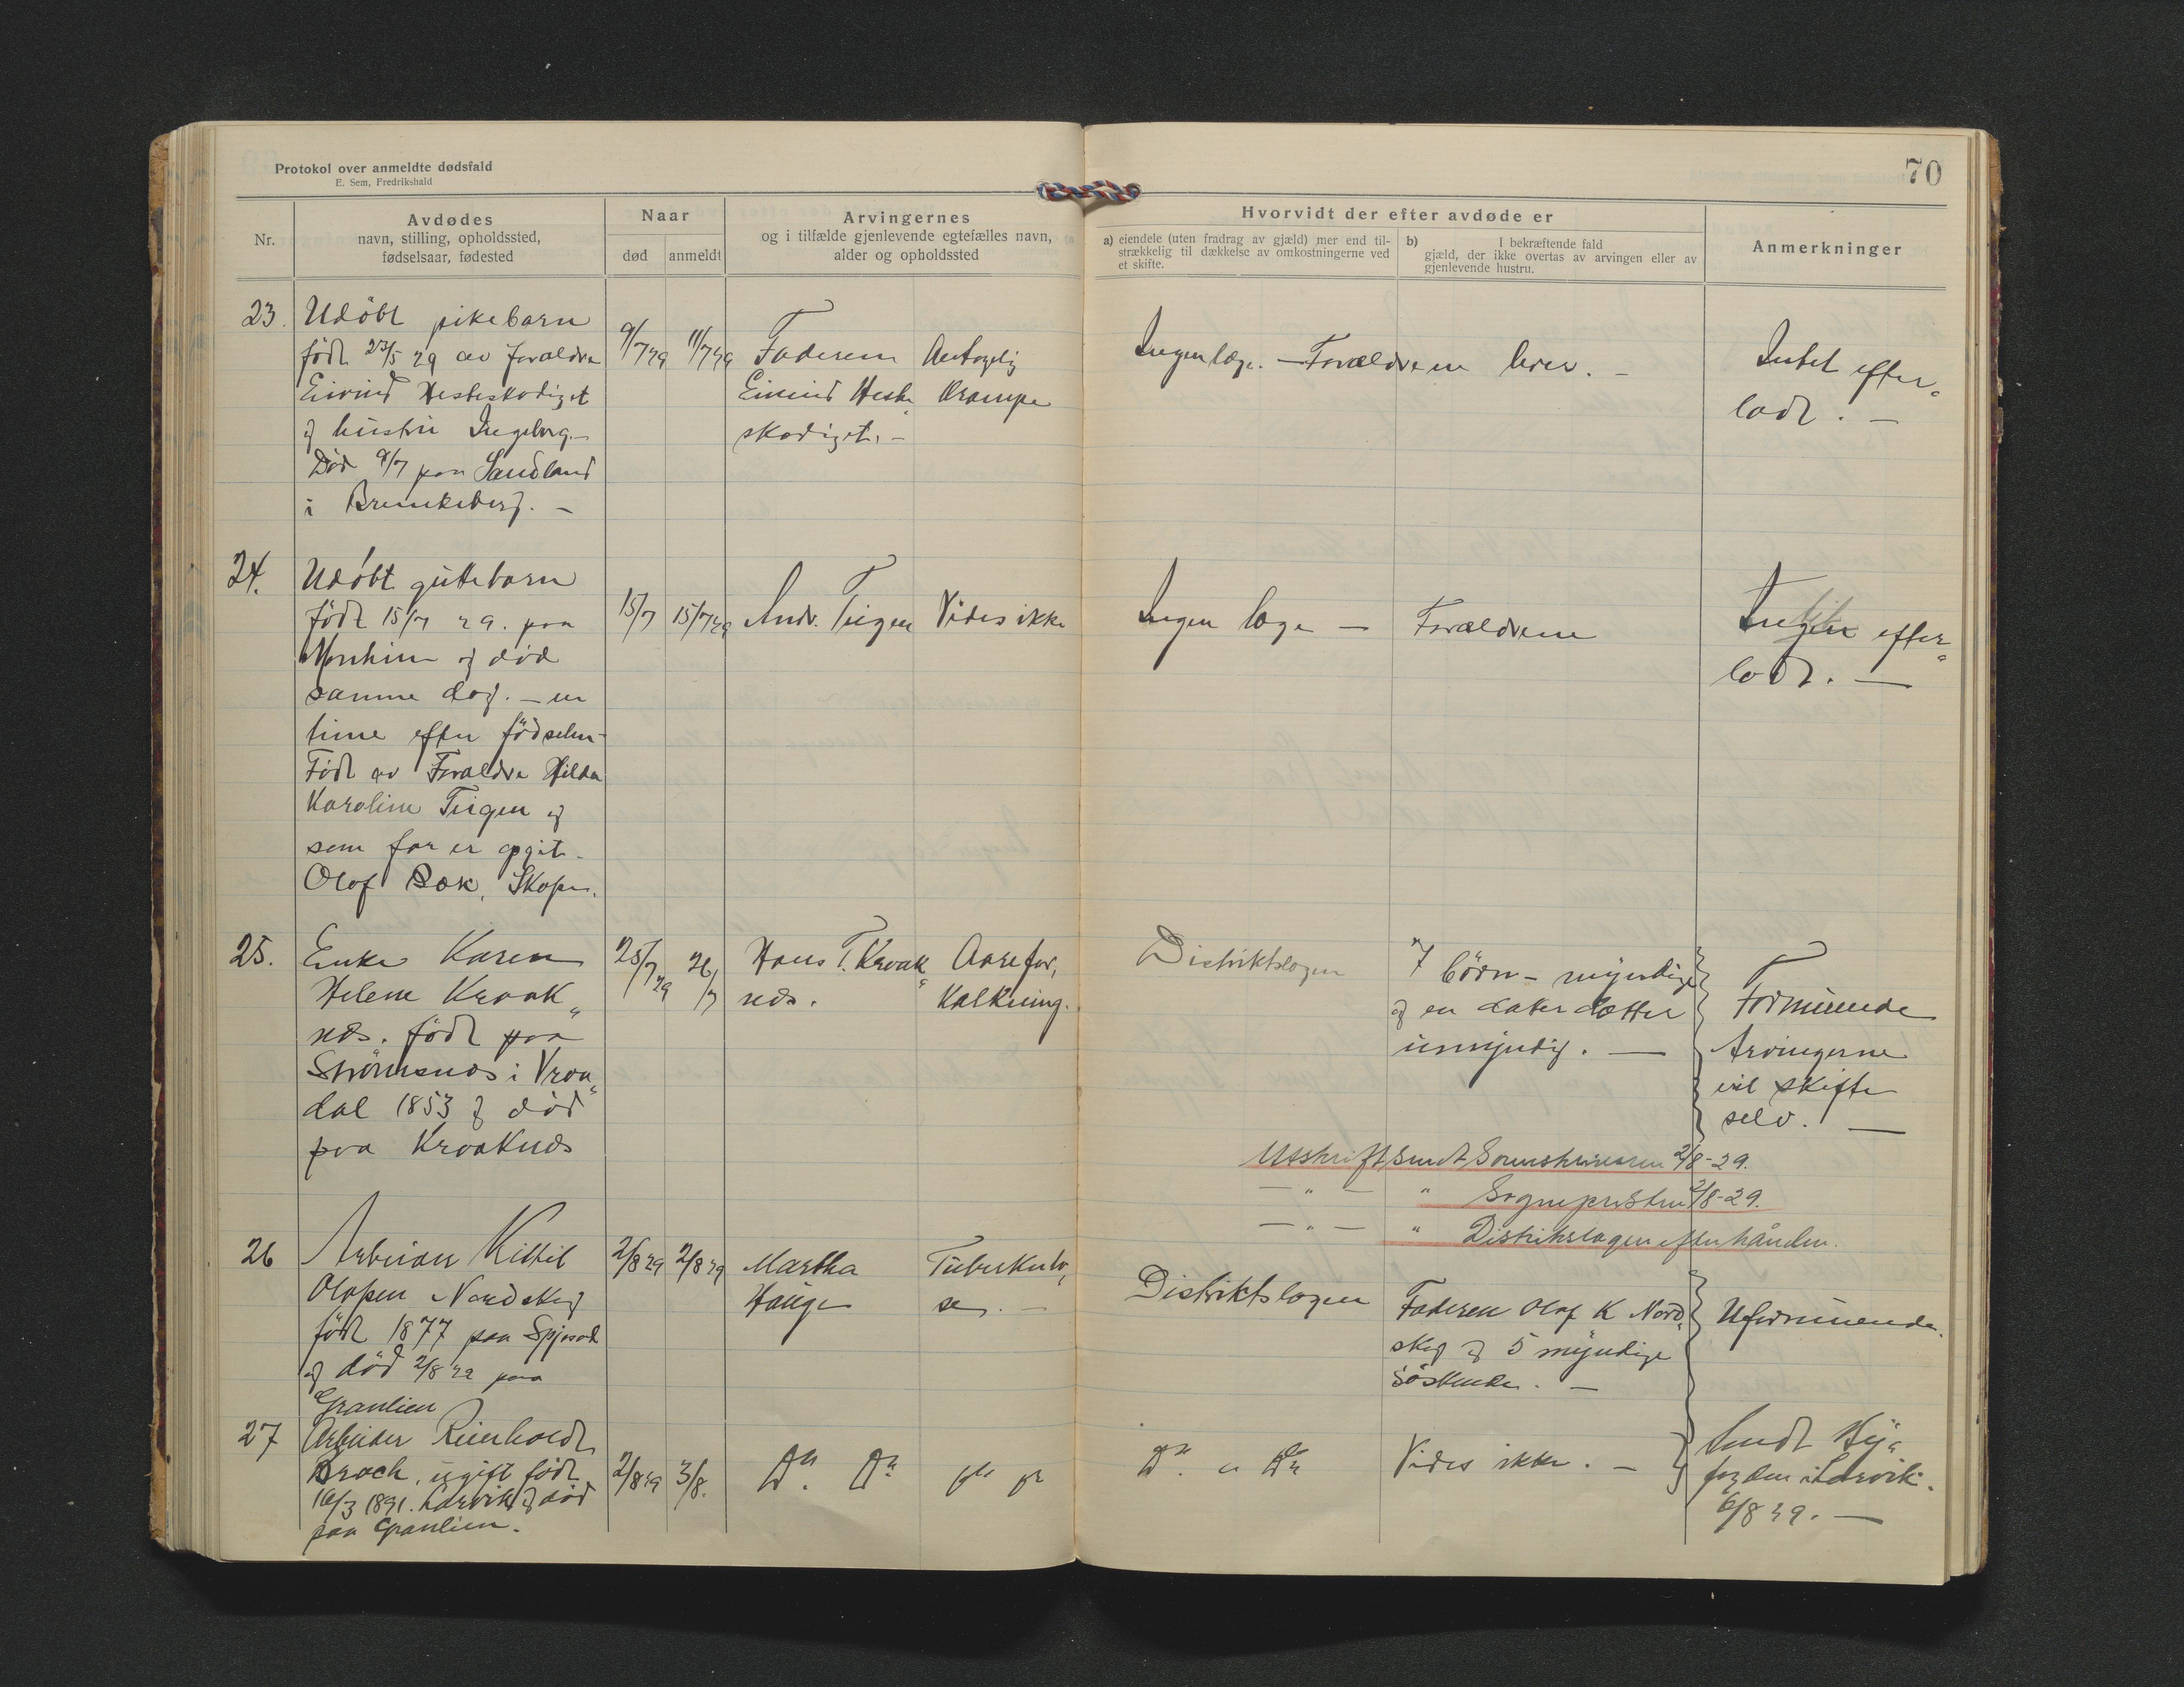 Protokol over anmeldte dødsfald
E. Sem, Fredrikshald
70
Nr.
Avdødes
navn, stilling, opholdssted,
fødselsaar, fødested
Naar
død
anmeldt
Arvingernes
og i tilfælde gjenlevende egtefælles navn,
alder og opholdssted
Hvorvidt der efter avdøde er
a) eiendele (uten fradrag av gjæld) mer end til-
strækkelig til dækkelse av omkostningerne ved
et skifte.
b) I bekræftende fald
gjæld, der ikke overtas av arvingen eller av
gjenlevende hustru.
Anmerkninger
23.
Udöbt pikebarn
födt 23/5 29 av Foraldre
Eivind Hesteskodiget
og hustru Ingeborg.-
Död 9/7 paa Sandland
i Brunkeberg. -
9/7 29
11/7 29
Faderen
Eivind Heste„
skodiget. -
Antagelig
Krampe
Ingen læge. - Forældrene lever. -
Intet efter„
ladt. -
24.
Udöbt guttebarn
födt 15/7 29. paa
og död
samme dag. - en
time efter födselen-
Födt av Foraldre Hilda
Karoline Teigen og
som far er opgit-
Olaf Bak,
15/7
15/7 29
Andr. Teigen
Vides ikke
Ingen læge -
Forældrene
efter„
ladt. -
25.
Enke Karen
Helene Kraak„
nes. födt paa
Strömsnes i Vraa„
dal 1853 og död
paa Kraaknes
25/7 29
26/7
Hans T. Kraak„
nes.
Aarefor,
Kalkning.
Distriktslægen
7 börn - myndige
og en datter datter
umyndig. -
Formuende
Arvingerne
vil skifte
selv. -
Utskrift sendt Sorenskriveren 2/8-29.
- „ - „ Sogneprsten 2/8-29.
- „ - „ Distrikslægen efterhånden.
26
Arbeider Kittil
Olavsen Nordskog
födt 1877 paa
og död 2/8 29 paa
Granlien
2/8 29
2/8 29
Martha
Hauge
Tuberkulo„
se. -
Distriktslægen
Faderen Olaf K Nord„
skog og 5 myndige
Söskende. -
Uformuende.
27
Arbeider Reinholdt
Broch, ugift födt
16/3 1891. Larvik og död
paa Granlien.
2/8 29
3/8.
Do. Do
Do. „ Do
Vides ikke. -
Sendt Hje„
i Larvik.
6/8 29. -